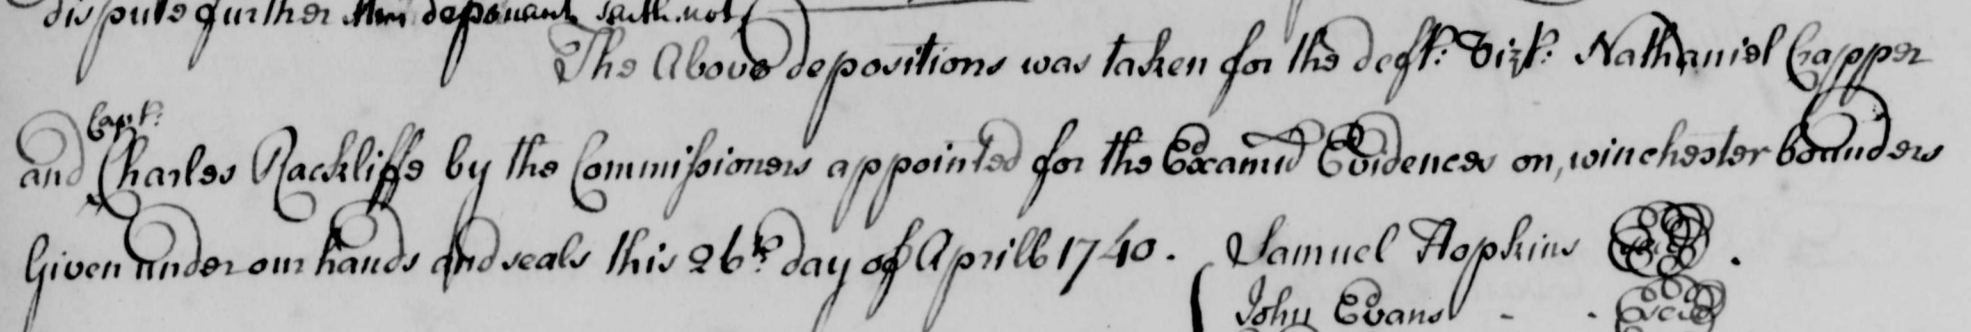 dispute further this deponant saith not
The Above depositions was taken for the deft: Vizt: Nathaniel Capper
and Capt: Charles Rackliffe by the Commissioners appointed for the Examd Evidences on, winchester bounders
Given under our hands and seals this 26th day of Aprill 1740. Samuel Hopkins Seal.
John Evans - - Seal